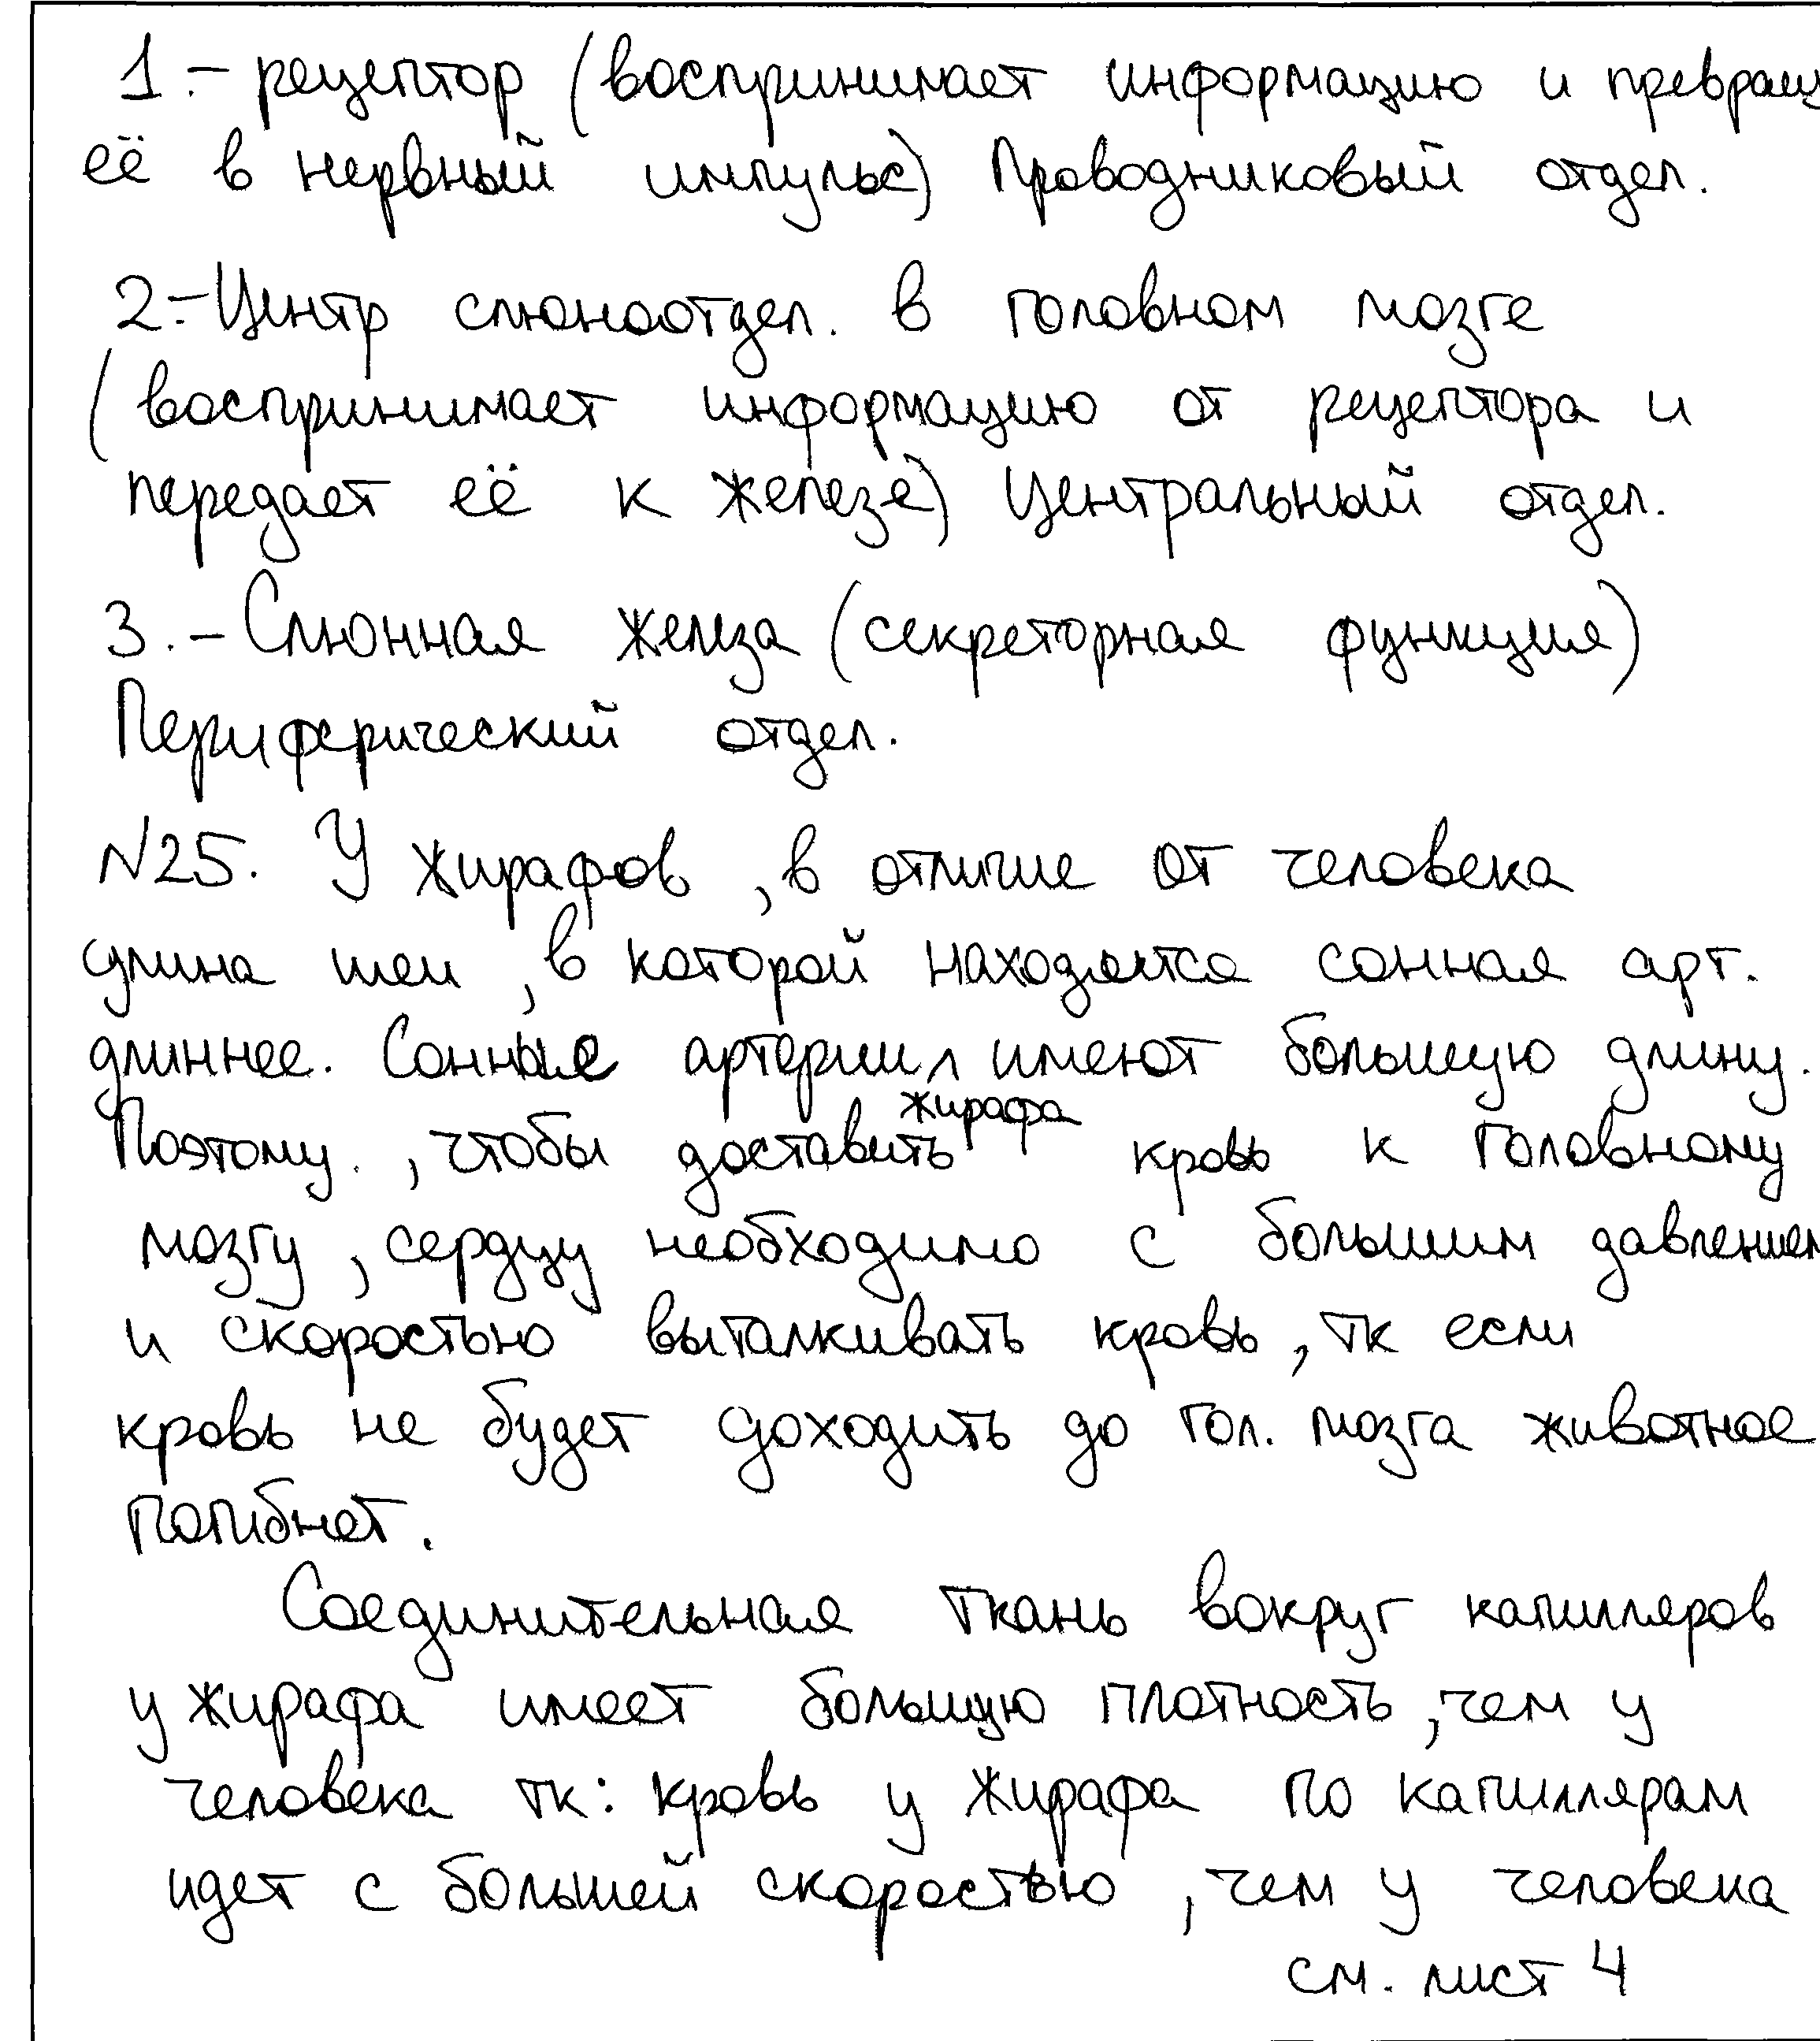 1.- рецептор (воспринимает информацию и превращ
её в нервный импульс) Проводниковый отдел.
2.- Центр слюноотдел. в головном мозге
(воспринимает информацию от рецептора и
передает её к железе) Центральный отдел.
3.- Слюнная железа (секреторная функция)
Периферический отдел.
№25. У жирафов, в отличие от человека
длина шеи, в которой находятся сонная арт.
длиннее. Сонные артерии ^ имеют большую длину.
жирафа
Поэтому, чтобы доставить кровь к головному
мозгу, сердцу необходимо с большим давлением
и скоростью выталкивать кровь, тк если
кровь не будет доходить до гол. мозга животное
погибнет.
Соединительная ткань вокруг капилляров
у жирафа имеет большую плотность, чем у
человека тк: кровь у жирафа по капиллярам
идет с большей скоростью, чем у человека
см. лист 4